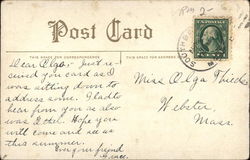 Post Card
THIS SPACE FOR CORRESPONDENCE
THIS SPACE FOR ADDRESS
Dear Olga,- Just re-
ceived your card as I
was sitting down to
address some. Glad to
hear from you as also
was Ester. Hope you
will come and see us
this summer.
Ever your friend
Grace.
Miss Olga Thiede
Webster
Mass.